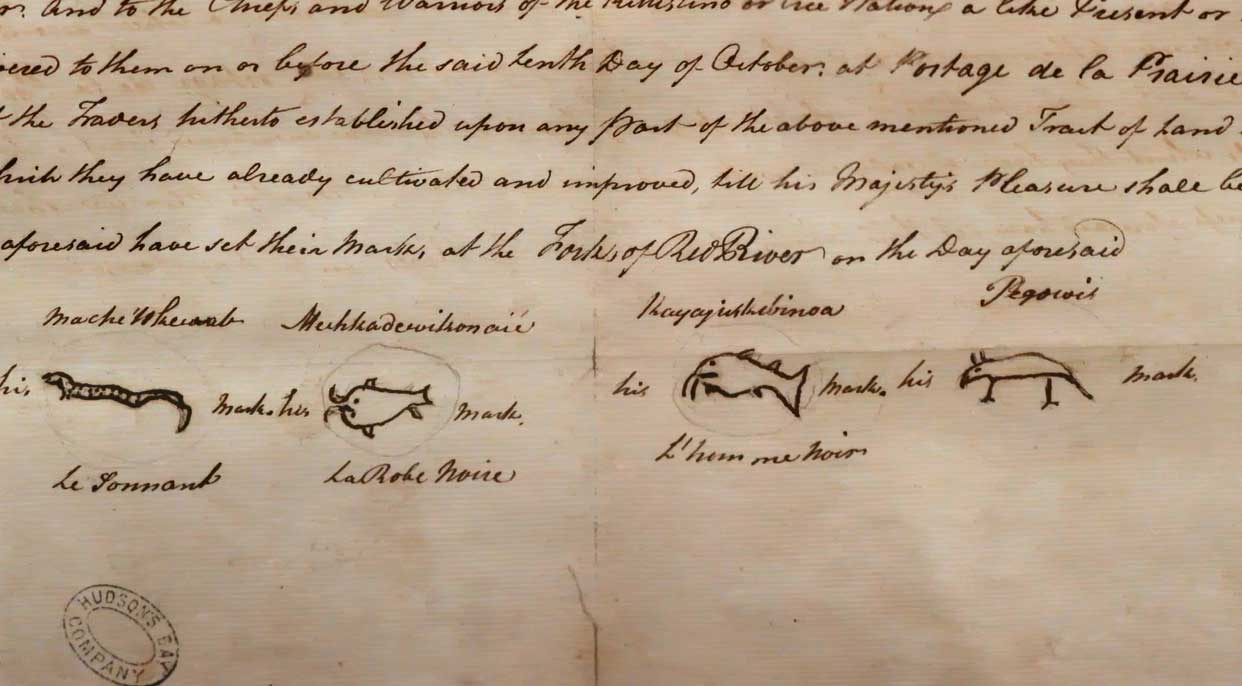 And to the Chiefs and Warriors of the Killistino or Cree Nation, a like Present or
ered to them on or before the said tenth Day of October, at Portage de la Prairie
the Traders hitherto established upon any Part of the above mentioned Tract of Land
which they have already cultivated and improved, till his Majesty's Pleasure shall be
aforesaid have set their Marks, at the Forks of Red River on the Day aforesaid
Mache Wheseab Mechkadewikonaié Kayajieskebinoa Pegowis
his mark. his mark. his mark. his mark.
Le Sonnant La Robe Noire L'homme Noir
HUDSON'S BAY
COMPANY